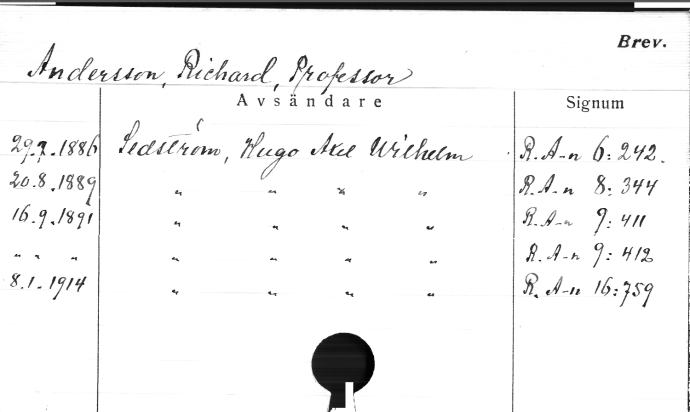 Brev.
Andersson, Richard, Professor
Avsändare Signum
29.7.1886 Sedström, Hugo Axel Wilhelm R. A-n 6:242.
20.8.1889 " " " " R. A-n 8:344
16.9.1891 " " " " R. A-n 9:411
" " " " " " " R. A-n 9:412
8.1.1914 " " " " R. A-n 16:759